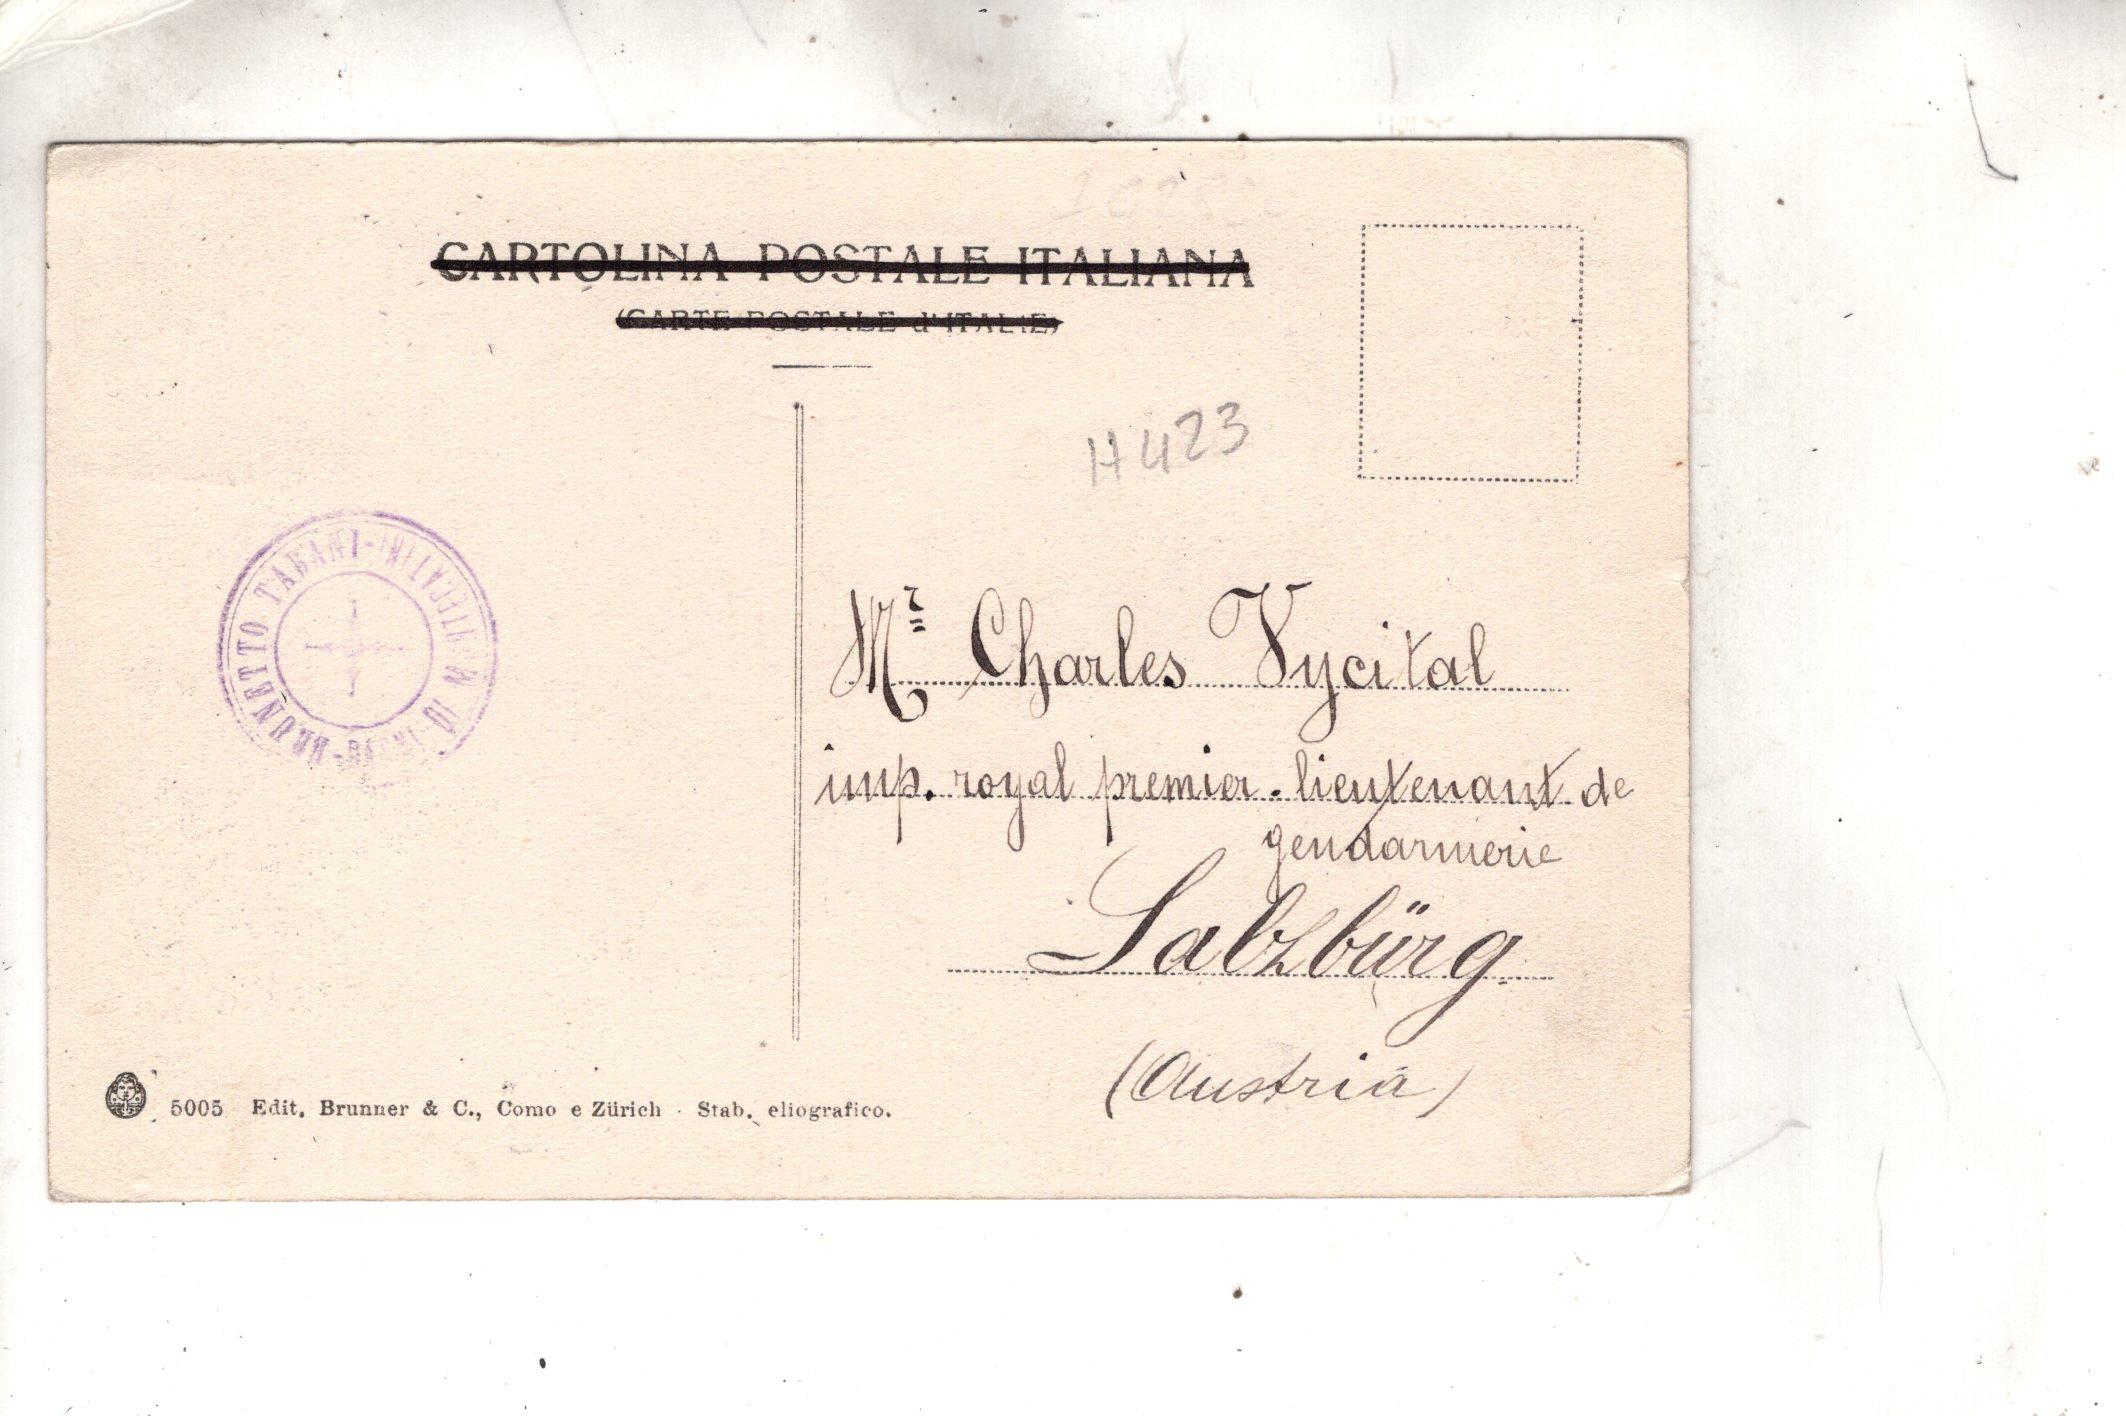 CARTOLINA POSTALE ITALIANA
(CARTE POSTALE d'ITALIE)
H 423
BRUNETTO TABANI
Mr Charles Vycital
imp. royal premier-lieutenant de
gendarmerie
Salzbürg
(Austria)
5005 Edit. Brunner & C., Como e Zürich - Stab. eliografico.